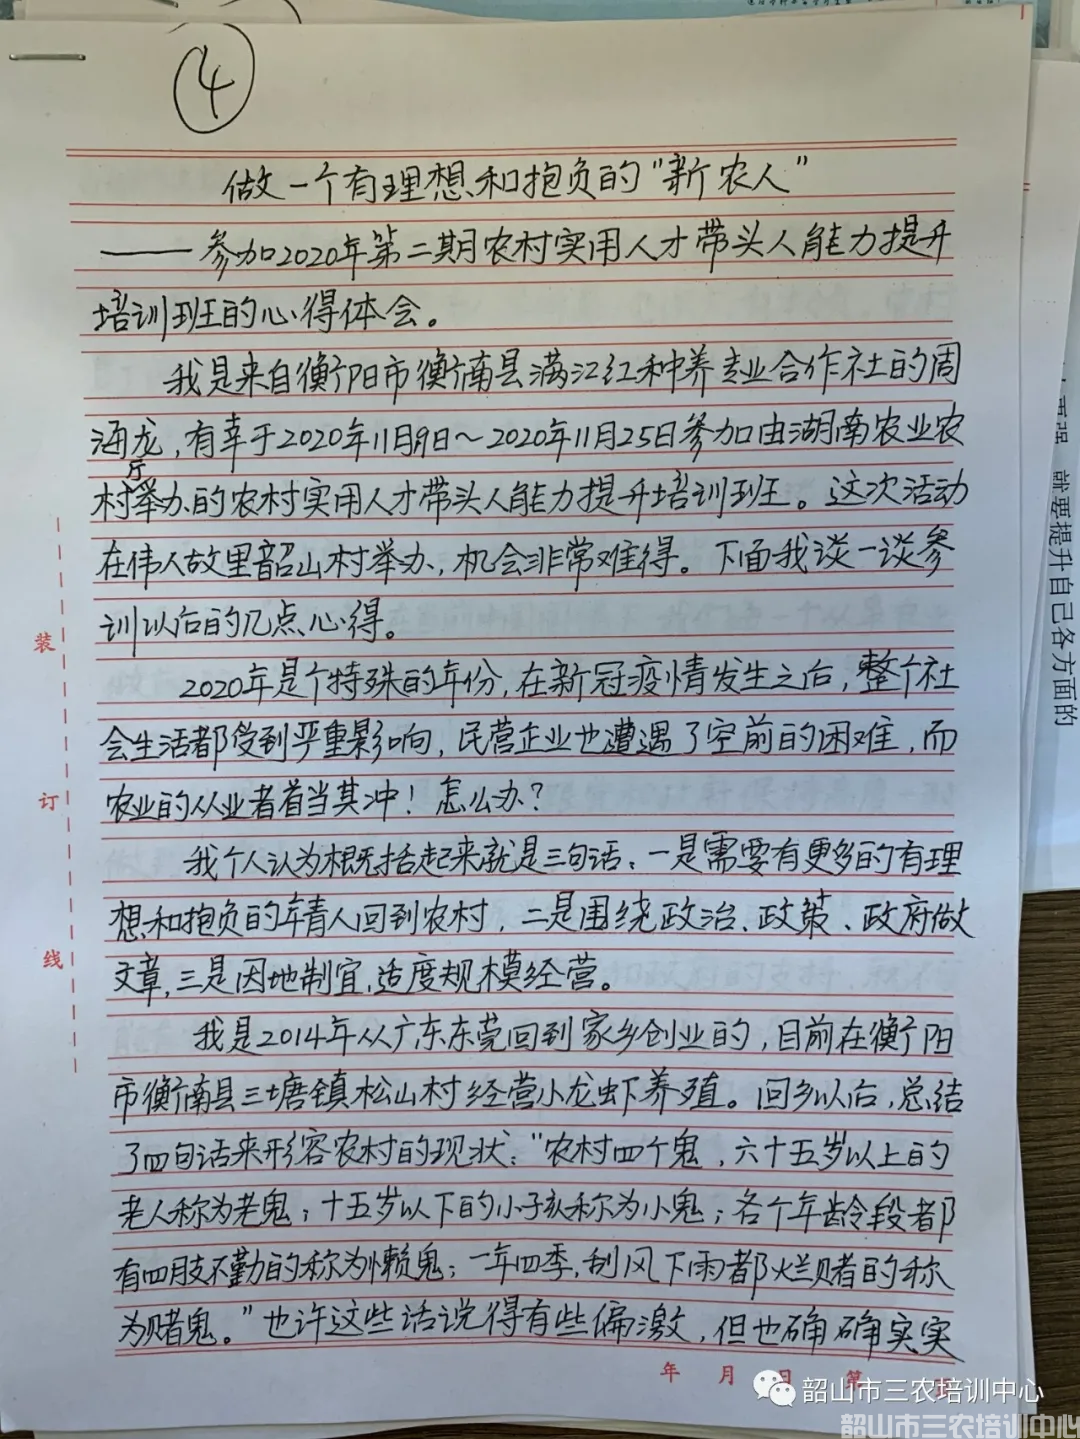 ④
做一个有理想和抱负的"新农人"
——参加2020年第二期农村实用人才带头人能力提升
培训班的心得体会。
我是来自衡阳市衡南县满江红种养专业合作社的周
海龙,有幸于2020年11月9日～2020年11月25日参加由湖南农业农
村厅举办的农村实用人才带头人能力提升培训班。这次活动
在伟人故里韶山村举办,机会非常难得。下面我谈一谈参
训以后的几点心得。
2020年是个特殊的年份,在新冠疫情发生之后,整个社
会生活都受到严重影响,民营企业也遭遇了空前的困难,而
农业的从业者首当其冲!怎么办?
我个人认为概括起来就是三句话:一是需要有更多的有理
想和抱负的年青人回到农村,二是围绕政治、政策、政府做
文章,三是因地制宜,适度规模经营。
我是2014年从广东东莞回到家乡创业的,目前在衡阳
市衡南县三塘镇松山村经营小龙虾养殖。回乡以后,总结
了四句话来形容农村的现状:"农村四个鬼,六十五岁以上的
老人称为老鬼;十五岁以下的小孩称为小鬼;各个年龄段都
有四肢不勤的称为懒鬼;一年四季,刮风下雨都烂赌的称
为赌鬼。"也许这些话说得有些偏激,但也确确实实
装
订
线
年 月 日 第
就要提升自己各方面的
韶山市三农培训中心
韶山市三农培训中心